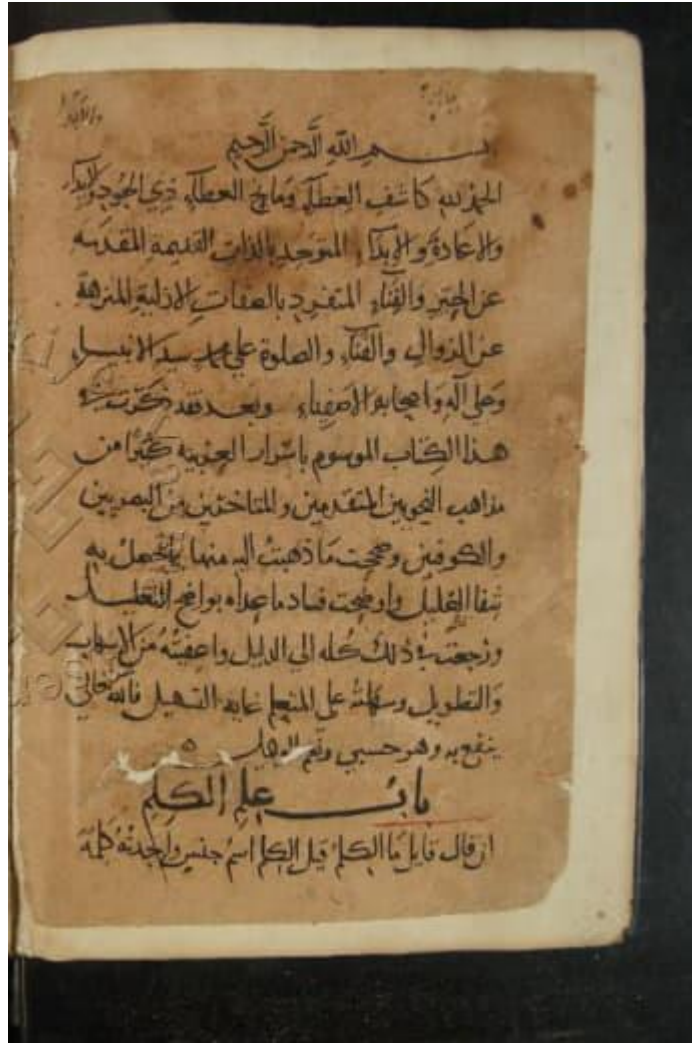 بسم الله الرحمن الرحيم
الحمد لله كاشف الغطاء ومانح العطاء ذي الجود والابداء
والاعادة والابداء المتوحد بالذات القديمة المقدسه
عن الحين والفناء المتفرد بالصفات الازلية المنزهة
عن الزوال والفناء والصلوة على محمد سيد الانبياء
وعلى آله واصحابه الاصفياء وبعد فقد ذكرت في
هذا الكتاب الموسوم باسرار العربيه كثيرا من
مذاهب النحويين المتقدمين والمتاخرين من البصريين
والكوفيين وصححت ما ذهبت اليه منها بما يحصل به
شفا الغليل واوضحت فساد ما عداه بواضح التعليل
ورجعت في ذلك كله الى الدليل واعفيته من الاسهاب
والتطويل وسهلته على المتعلم غاية التسهيل فالله تعالى
ينفع به وهو حسبي ونعم الوكيل
باب علم الكلم
ان قال قايل ما الكلم قيل الكلم اسم جنس واحدته كلمة